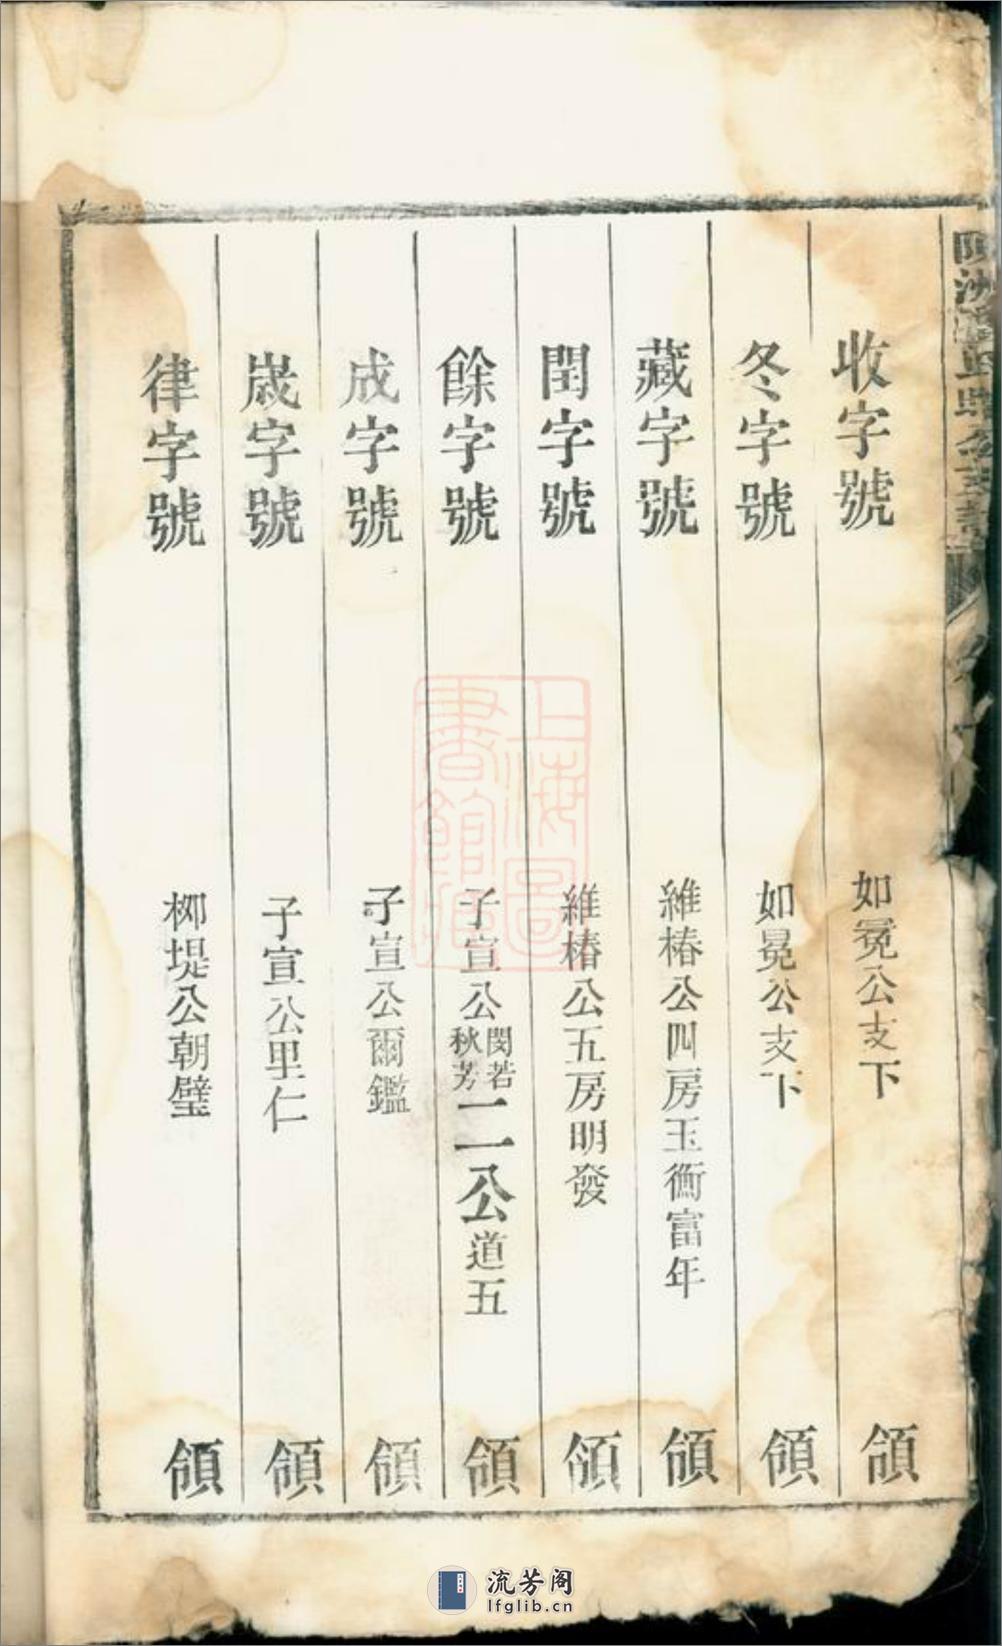 收字號 如冕公支下 領
冬字號 如冕公支下 領
藏字號 維椿公四房玉衡富年 領
閏字號 維椿公五房明發 領
餘字號 子宣公閔若秋芳二公道五 領
成字號 子宣公爾鑑 領
嵗字號 子宣公里仁 領
律字號 栁堤公朝璧 領
上海圖書館藏
流芳阁
lfglib.cn